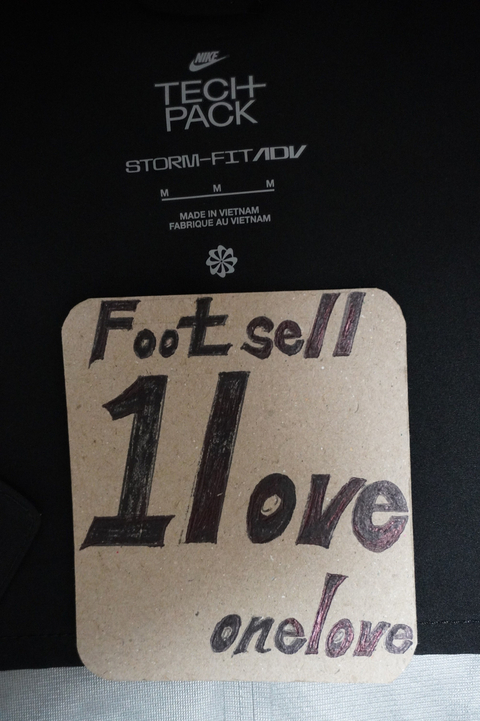 NIKE
TECH
PACK
STORM-FIT ADV
M M M
MADE IN VIETNAM
FABRIQUÉ AU VIETNAM
Foot sell
1love
onelove